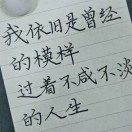 我依旧是曾经
的模样
过着不咸不淡
的人生